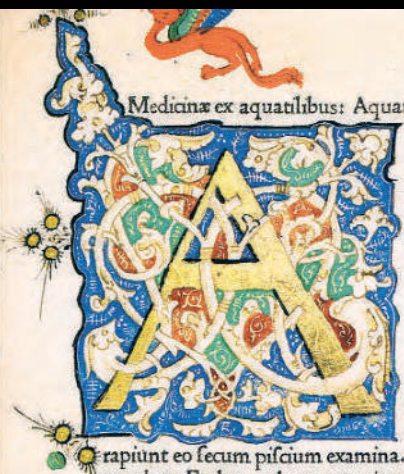 Medicinæ ex aquatilibus: Aqua
A
rapiunt eo ſecum piſcium examina.